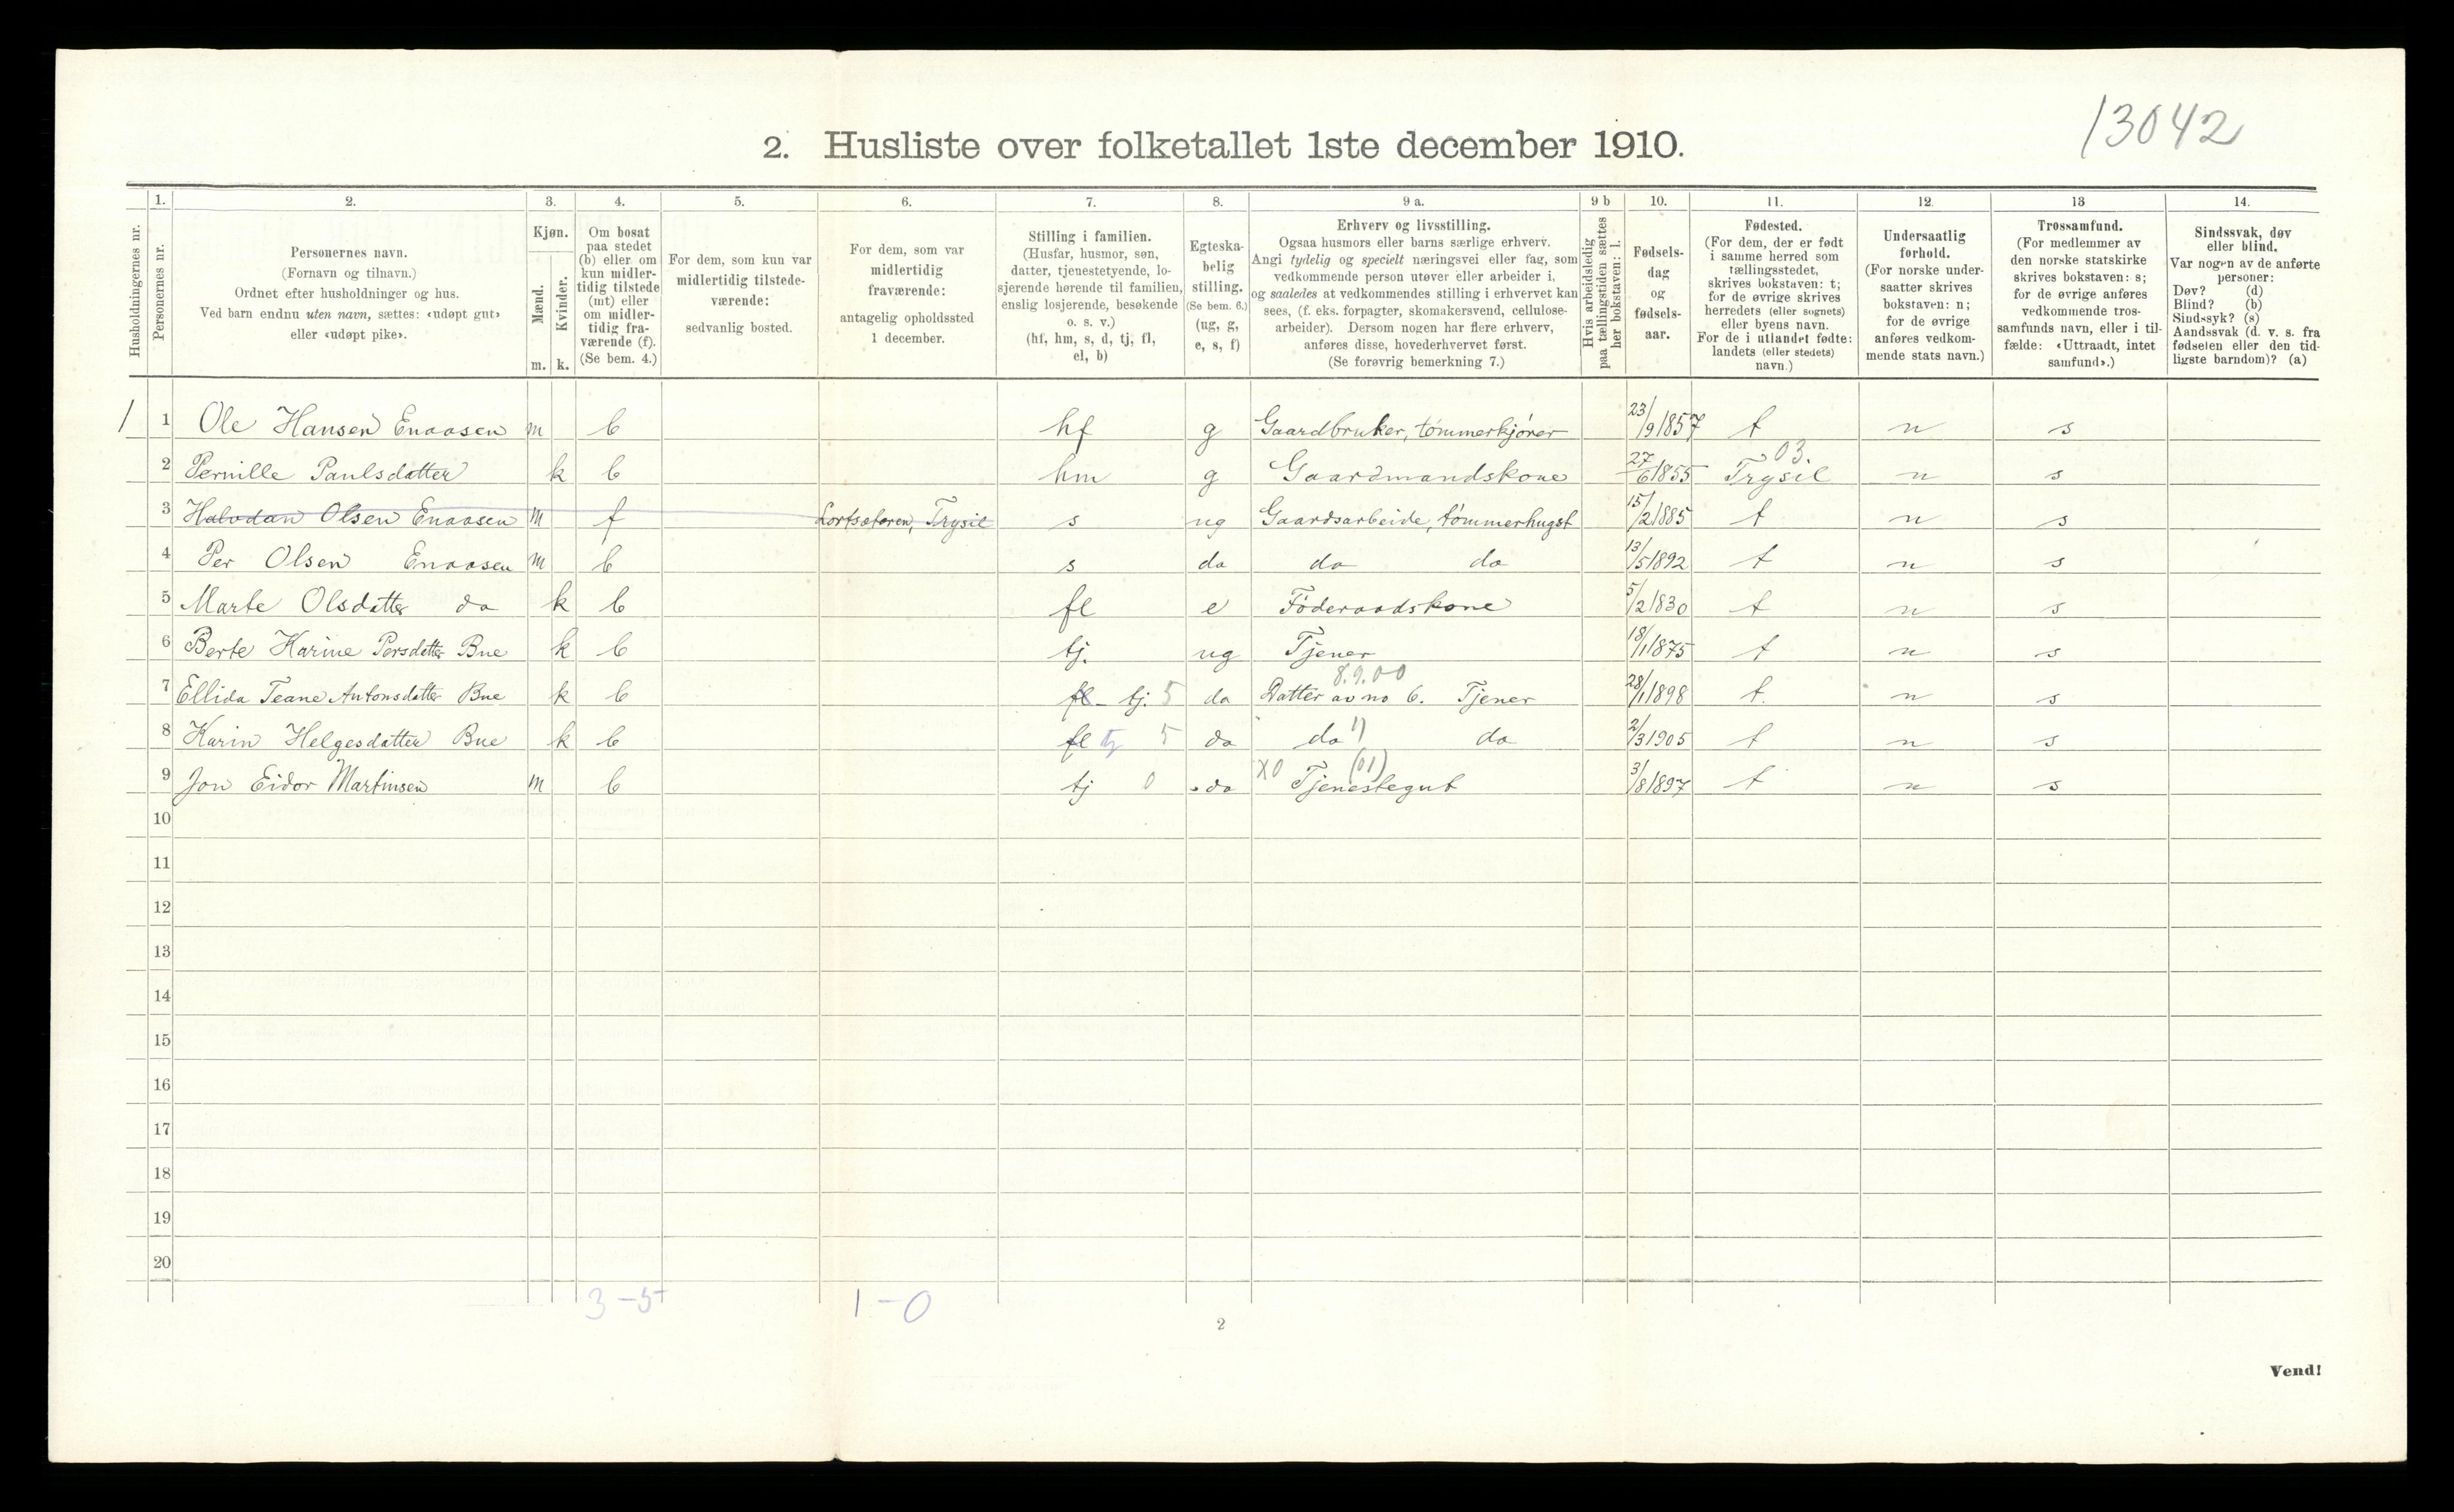 13042
2. Husliste over folketallet 1ste december 1910.
Husholdningernes nr.
1. Personernes nr.
2. Personernes navn. (Fornavn og tilnavn.) Ordnet efter husholdninger og hus. Ved barn endnu uten navn, sættes: «udøpt gut» eller «udøpt pike».
3. Kjøn. Mænd. m. Kvinder. k.
4. Om bosat paa stedet (b) eller om kun midlertidig tilstede (mt) eller om midlertidig fraværende (f). (Se bem. 4.)
5. For dem, som kun var midlertidig tilstedeværende: sedvanlig bosted.
6. For dem, som var midlertidig fraværende: antagelig opholdssted 1 december.
7. Stilling i familien. (Husfar, husmor, søn, datter, tjenestetyende, losjerende hørende til familien, enslig losjerende, besøkende o. s. v.) (hf, hm, s, d, tj, fl, el, b)
8. Egteskabelig stilling. (Se bem. 6.) (ug, g, e, s, f)
9 a. Erhverv og livsstilling. Ogsaa husmors eller barns særlige erhverv. Angi tydelig og specielt næringsvei eller fag, som vedkommende person utøver eller arbeider i, og saaledes at vedkommendes stilling i erhvervet kan sees, (f. eks. forpagter, skomakersvend, cellulosearbeider). Dersom nogen har flere erhverv, anføres disse, hovederhvervet først. (Se forøvrig bemerkning 7.)
9 b Hvis arbeidsledig paa tællingstiden sættes her bokstaven: l.
10. Fødselsdag og fødselsaar.
11. Fødested. (For dem, der er født i samme herred som tællingsstedet, skrives bokstaven: t; for de øvrige skrives herredets (eller sognets) eller byens navn. For de i utlandet fødte: landets (eller stedets) navn.)
12. Undersaatlig forhold. (For norske undersaatter skrives bokstaven: n; for de øvrige anføres vedkommende stats navn.)
13 Trossamfund. (For medlemmer av den norske statskirke skrives bokstaven: s; for de øvrige anføres vedkommende trossamfunds navn, eller i tilfælde: «Uttraadt, intet samfund».)
14. Sindssvak, døv eller blind. Var nogen av de anførte personer: Døv? (d) Blind? (b) Sindssyk? (s) Aandssvak (d. v. s. fra fødselen eller den tidligste barndom)? (a)
1 1 Ole Hansen Enaasen m b hf g Gaardbruker, tømmerkjører 23/9 1857 t n s
2 Pernille Paulsdatter k b hm g Gaardmandskone 27/6 1855 Trysil 03. n s
3 Halvdan Olsen Enaasen m f Lortsæteren, Trysil s ug Gaardsarbeide, tømmerhugst 15/2 1885 t n s
4 Per Olsen Enaasen m b s do do do 13/5 1892 t n s
5 Marte Olsdatter do k b fl e Føderaadskone 5/2 1830 t n s
6 Berte Karine Persdatter Bue k b tj. ug Tjener 18/1 1875 t n s
8.9.00
7 Ellida Teane Antonsdatter Bue k b fl - tj. 5 do Datter av no 6. Tjener 28/1 1898 t. n s
8 Karin Helgesdatter Bue k b fl tj 5 do do 1) do 2/3 1905 t n s
9 Jon Eidor Martinsen m b tj 0 do X0 (01) Tjenestegut 3/8 1897 t n s
10
11
12
13
14
15
16
17
18
19
20
3-5 1-0
2
Vend!